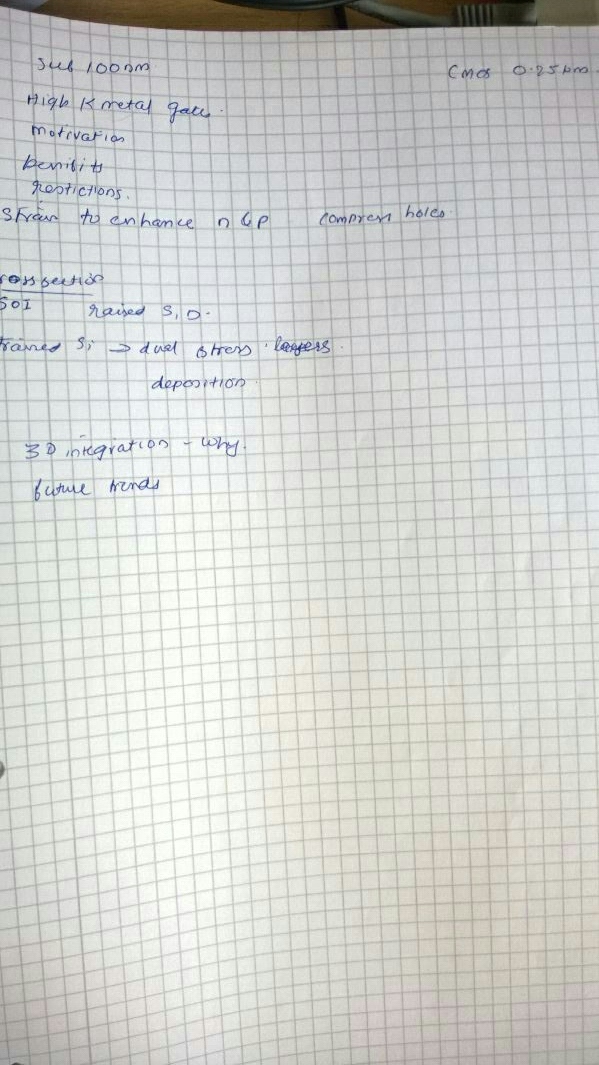 Sub 100nm
CMOS 0.25µm
High K metal gate.
motivation
benifits
restictions.
Strain to enhance n & P compress holes.
ross section
SOI raised S, D.
trained Si → dual stress layers.
deposition.
3D integration - why.
future trends